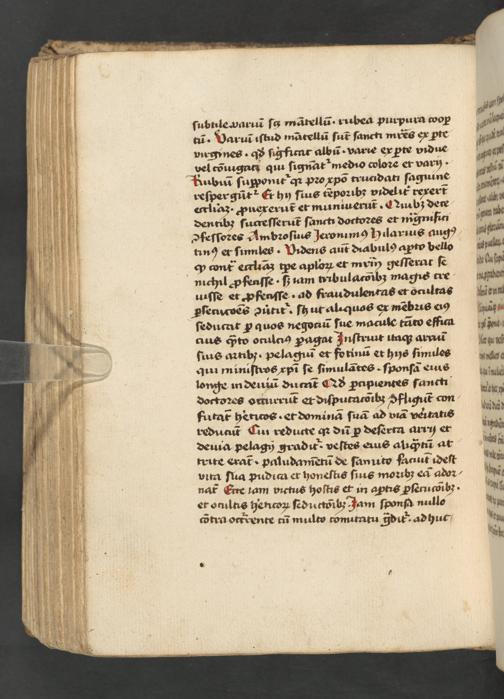 subtile.variū scꝫ mātellū · rubea purpura coop
tū · Variū istud mātellū sūt sancti mr̄es ex ꝑte
virgines · qđ sigficat albū · varie ex ꝑte vidue
vel cōiugati qui signātʳ medio colore et vary ·
Rubiū supponitʳ qꝛ pro xp̄o trucidati saguine
respergūtʳ Et hij suis tēporibꝫ videlit rexerūt
eccliaꝫ · ꝓuexerūt et muniuerūt · Quibꝫ dece
dentibꝫ successerūt sancti doctores et mgnifici
ꝯfessores Ambrosius Jeronimꝰ hilarius augꝰ
tinꝰ et similes · Videns aūt diabulꝰ aꝑto bello
ꝙ contʳ eccliaꝫ tꝑe aplōꝝ et mrīm gesserat se
nichil ꝓfecisse · sꝫ iam tribulacōibꝫ magis cre
uisse et ꝓfecisse · ad fraudulentas et ocultas
ꝑsecucōēs ꝯūtitʳ · sꝫ ut aliquos ex mēbris eiꝰ
seducat ꝑ quos negociū sue macule tāto effica
cius q̄to ocultiꝰ ꝑagat Instruit itaqꝫ arriū
suis artibꝫ · pelagiū et fotinū et hijs similes
qui ministros xp̄i se simulātes · sponsā eius
longe in deuiū ducāt Qđ ꝑcipientes sancti
doctores occurrūt et disputacōibꝫ ꝯfligūt con
futāt heticos · et dominā suā ad viā veritatis
reducūt Cū reducte qꝛ diū ꝑ deserta arrij et
deuia pelagij graditʳ · vestes eius aliq̄ntū at
trite erāt · paludamētū de samito faciūt idest
vita sua pudica et honestis suis moribꝫ eā ador
nāt Ecce iam victus hostis et in aꝑtis ꝑsecucōibꝫ ·
et ocultis heticoꝝ seductōibꝫ Iam sponsa nullo
cōtra occʳrente cū multo comitatu gᵃditʳ · adhuc